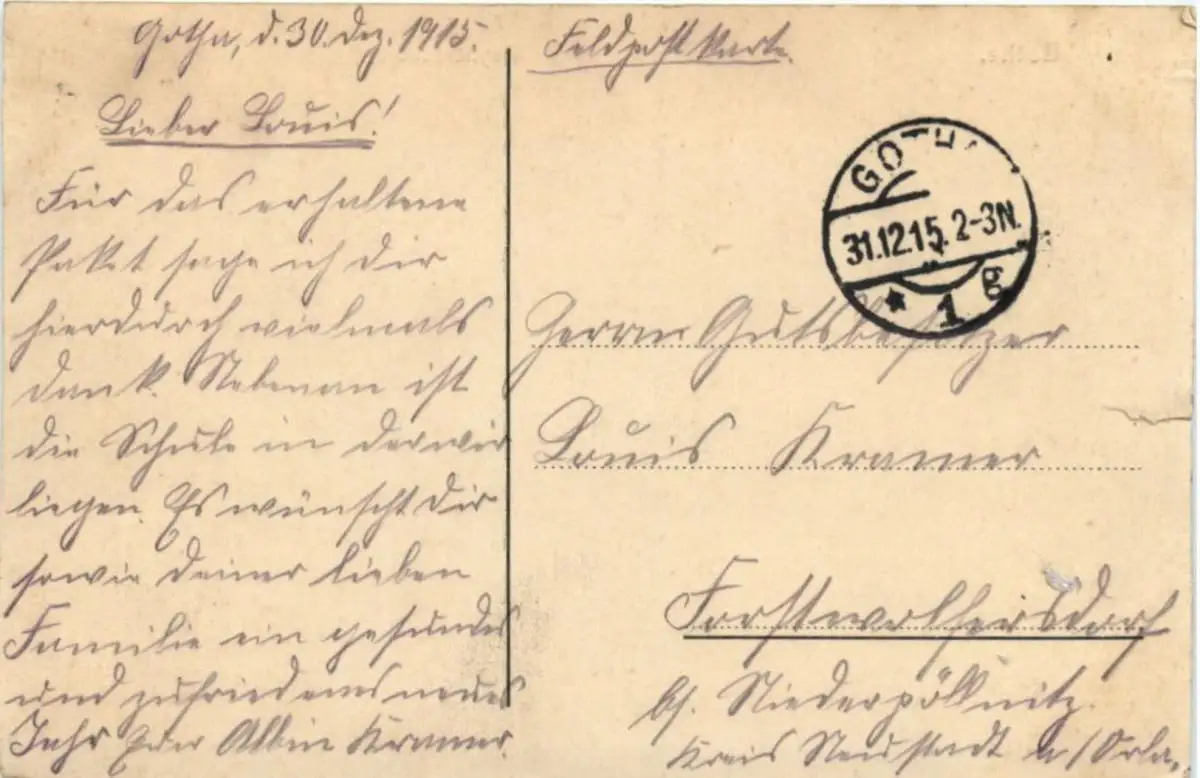 Gotha, d. 30. Dez. 1915.
Lieber Louis!
Für das erhaltene
Paket sage ich dir
hierdurch vielmals
dank. Nebenan ist
die Schule in der wir
liegen. Es wünscht dir
sowie deiner lieben
Familie ein gesundes
und zufriedenes neues
Jahr Euer Albin Kramer.
Feldpostkarte.
GOTHA
31.12.15. 2-3N.
* 1 g
Herrn Gutsbesitzer
Louis Kramer
Forstwolfersdorf
b/. Niederpöllnitz.
Kreis Neustadt a/Orla.